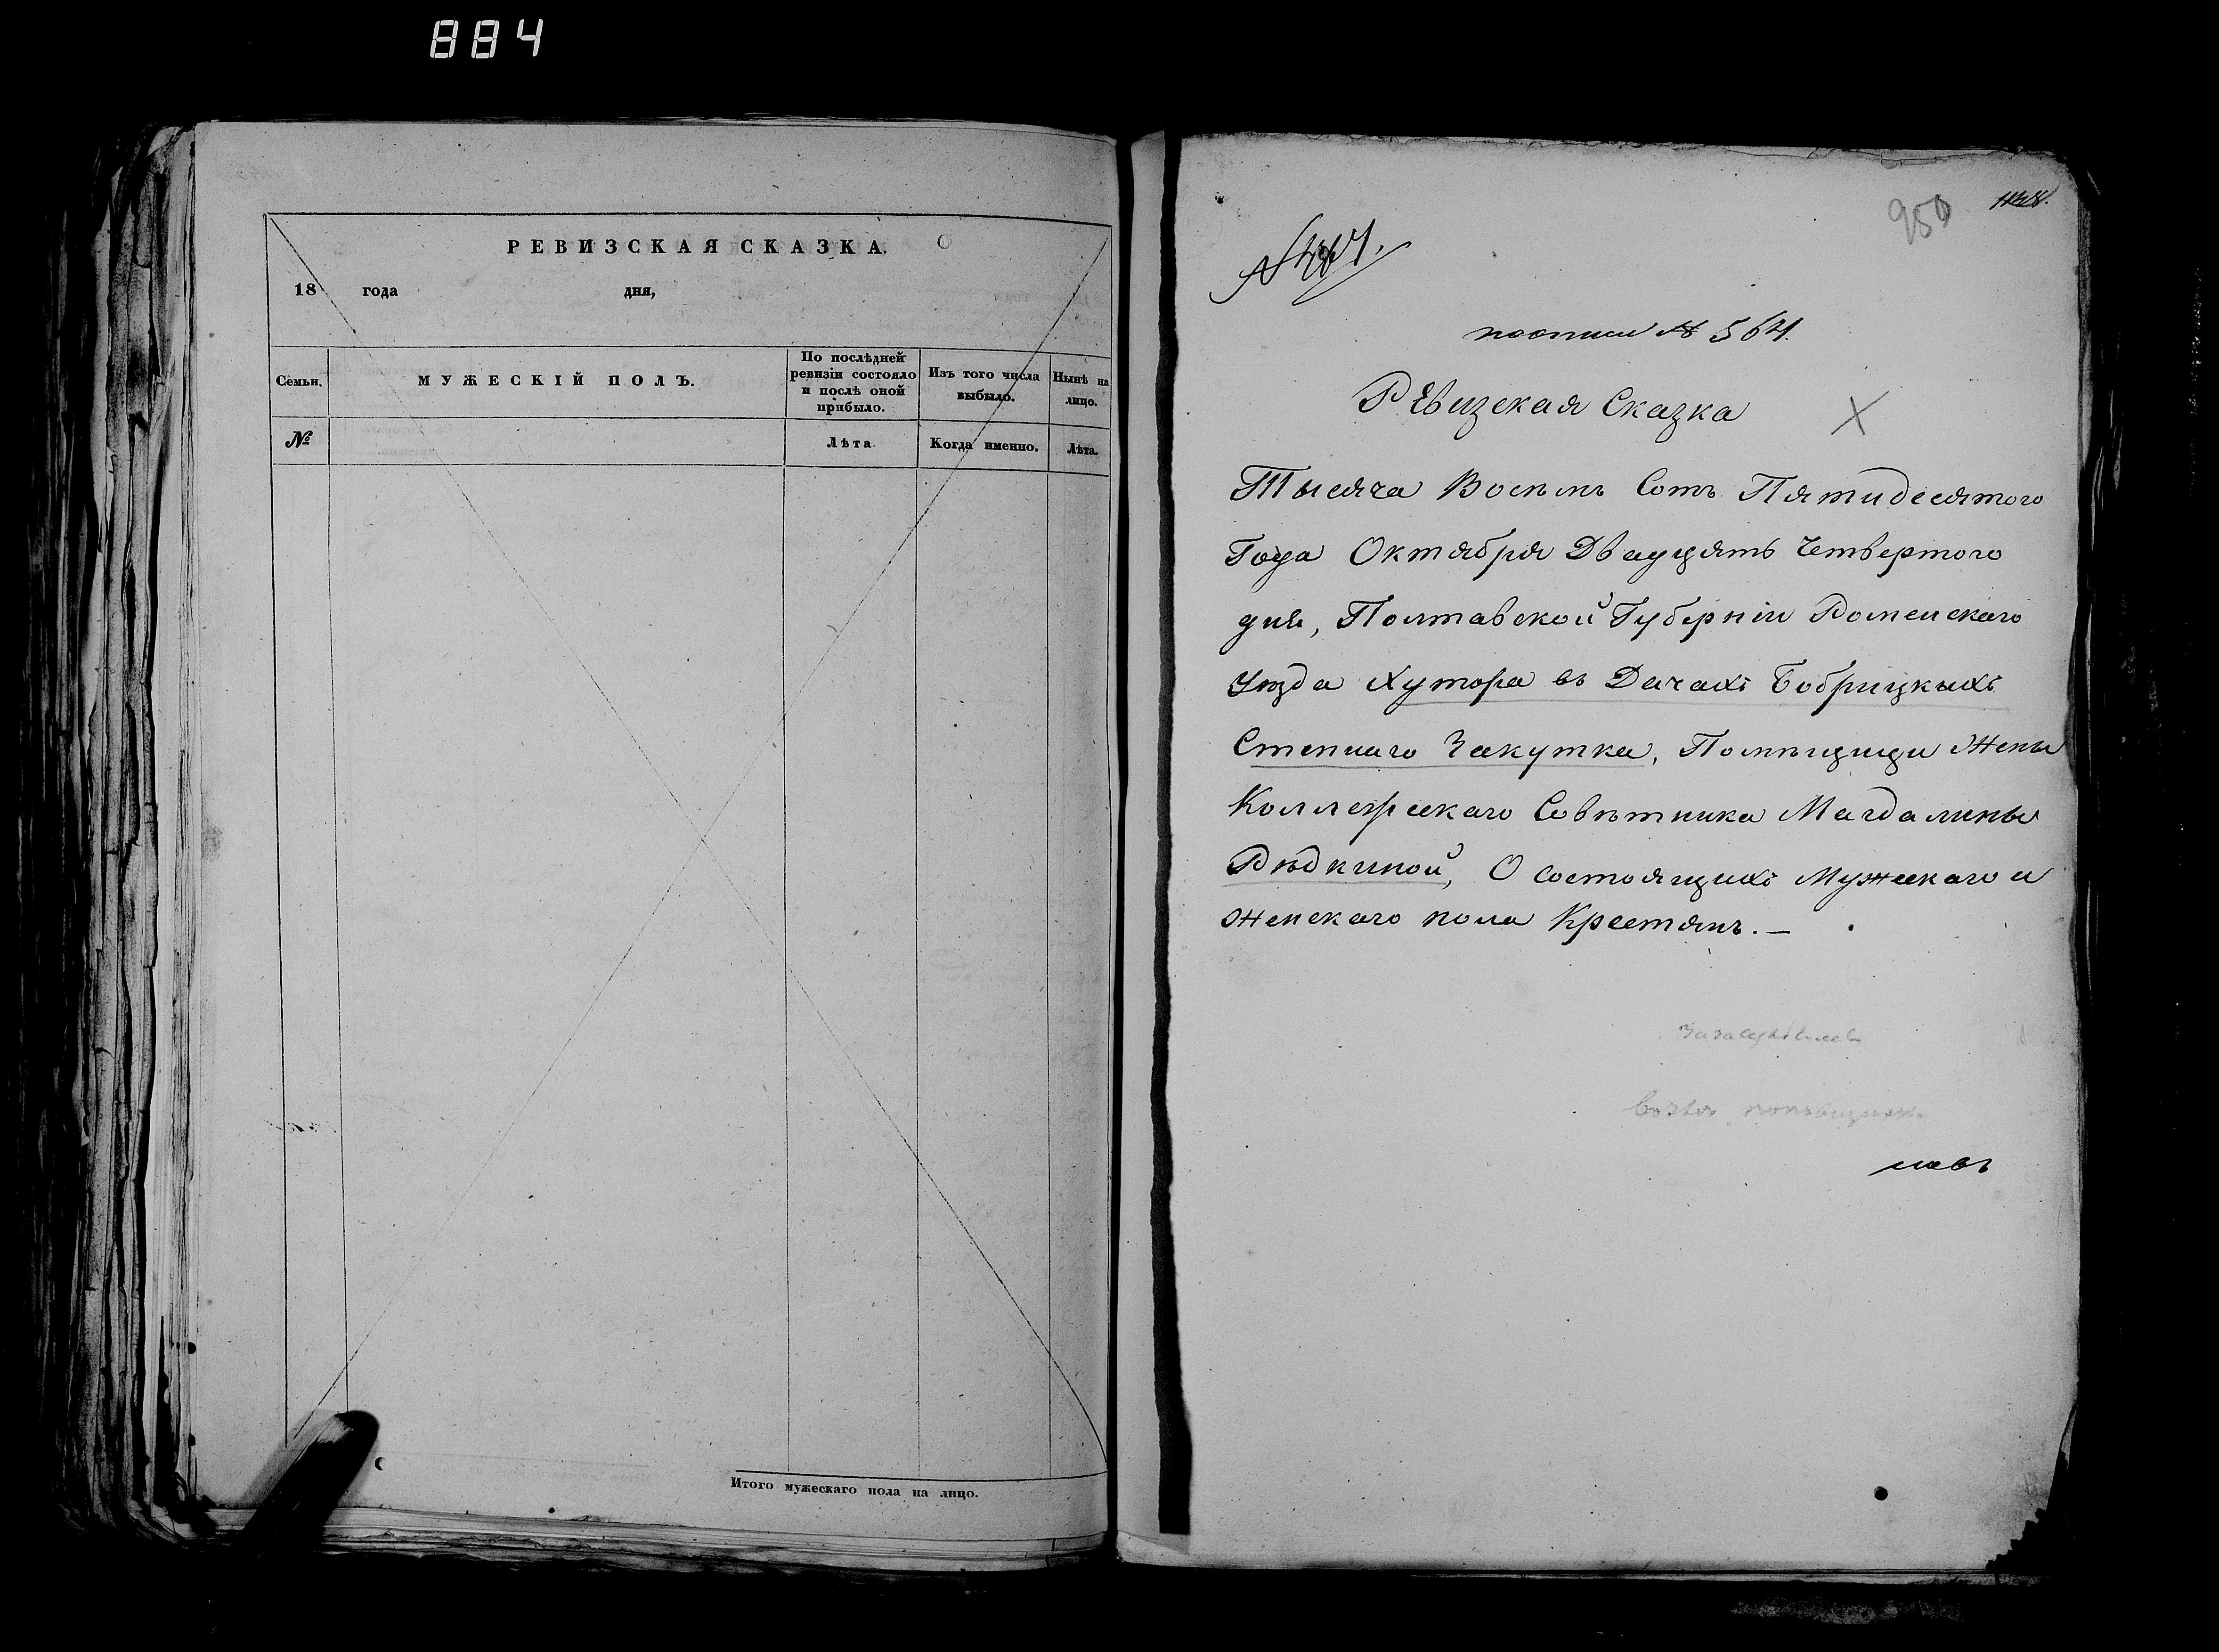 884
РЕВИЗСКАЯ СКАЗКА.
18 года дня,
Семьи.
МУЖЕСКІЙ ПОЛЪ.
По послѣдней ревизіи состояло и послѣ оной прибыло.
Изъ того числа выбыло.
Нынѣ на лицо.
№
Лѣта
Когда именно.
Лѣта.
Итого мужескаго пола на лицо.
950
по описи № 564.
Ревизская Сказка
Тысяча Восемь Сотъ Пятидесятого
Года Октября Двадцять Четвертого
дня, Полтавской Губерніи Роменскаго
уѣзда Хутора въ Дачахъ Бобрицкихъ
Степнаго Закутка, Помѣщици Жены
Коллежскаго Совѣтника Магдалины
Рѣдкиной, О состоящихъ Мужескаго и
женскаго пола Крестянъ. —